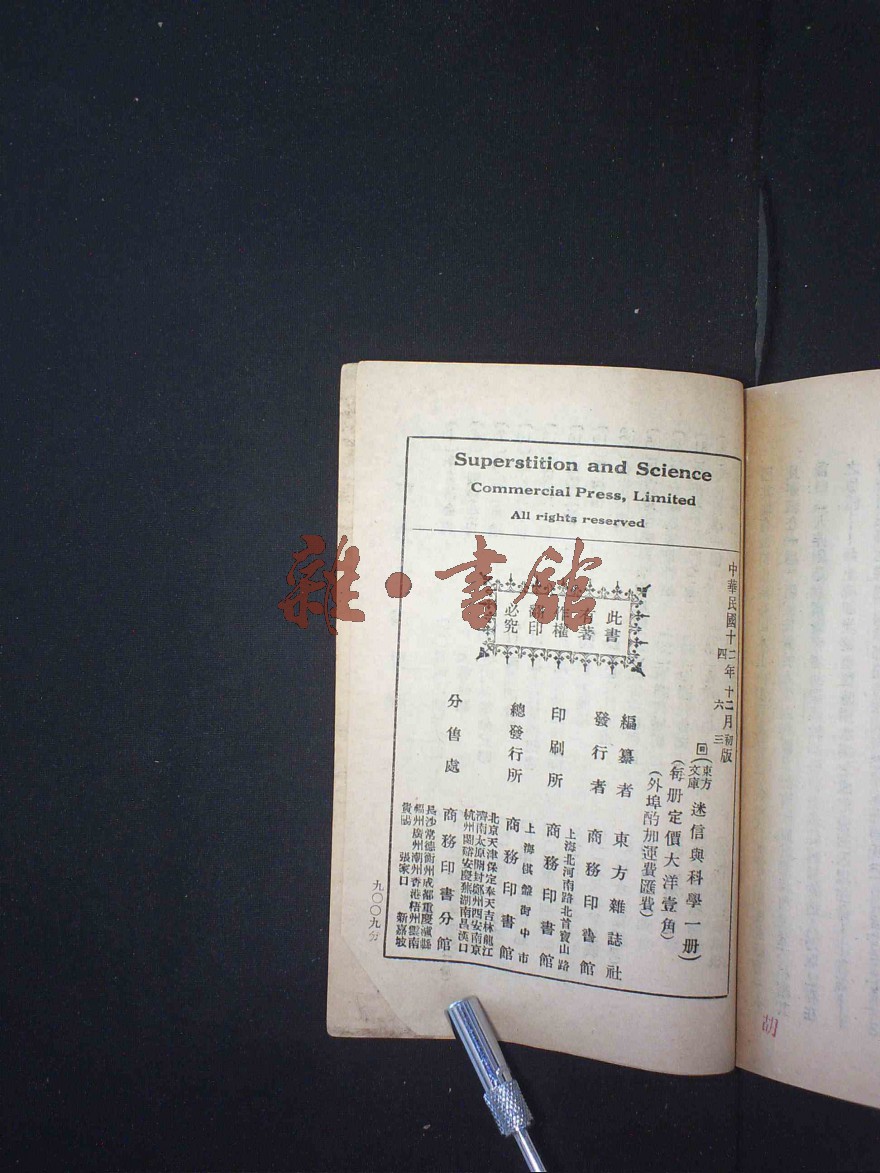 Superstition and Science
Commercial Press, Limited
All rights reserved
雜·書館
此書
有著
作權
翻印
必究
中華民國十二年十二月初版
四 六 三
(東方文庫)迷信與科學一册
(每册定價大洋壹角)
(外埠酌加運費匯費)
編纂者 東方雜誌社
發行者 商務印書館
上海北河南路北首寶山路
印刷所 商務印書館
上海棋盤街中市
總發行所 商務印書館
北京天津保定奉天吉林龍江
濟南太原開封鄭州西安南京
杭州蘭谿安慶蕪湖南昌漢口
分售處 商務印書分館
長沙常德衡州成都重慶瀘縣
福州廣州潮州香港梧州雲南
貴陽 張家口 新嘉坡
九〇〇九分
胡